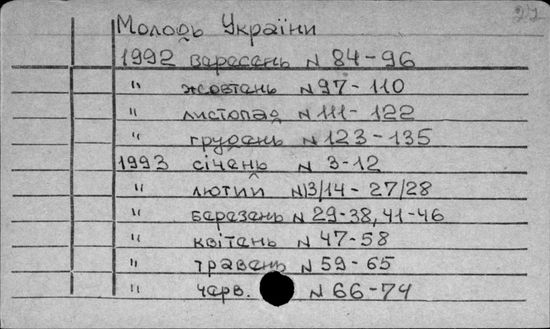 27
Молодь України
1992 вересень N 84-96
" жовтень N 97-110
" листопад N 111-122
" грудень N 123-135
1993 січень N 3-12
" лютий N 13/14-27/28
" березень N 29-38, 41-46
" квітень N 47-58
" травень N 59-65
" черв. N 66-74